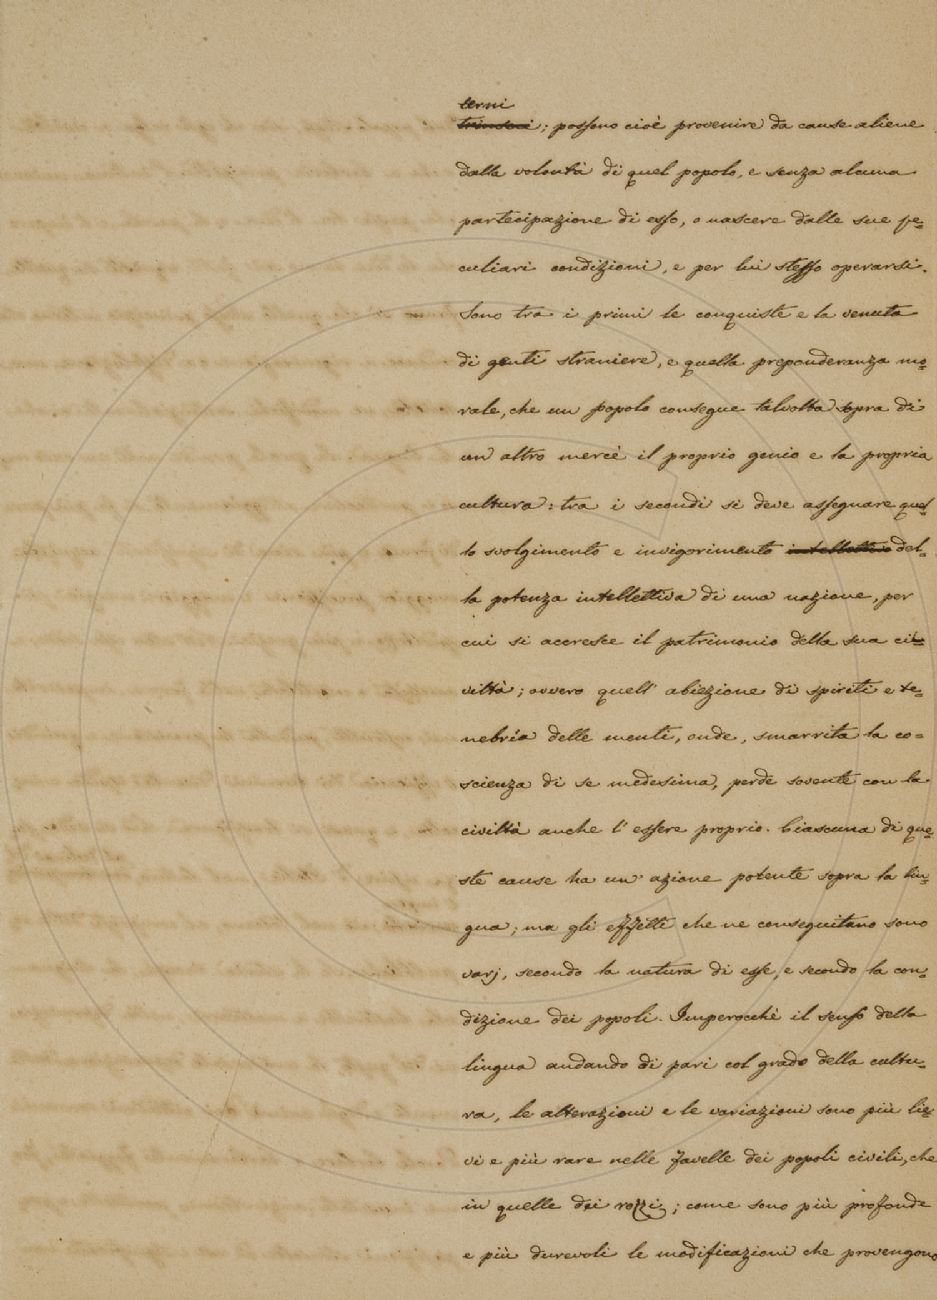 terni
trinseci; possono cioè provenire da cause aliene
dalla volontà di quel popolo, e senza alcuna
partecipazione di esso, o nascere dalle sue pe=
culiari condizioni, e per lui stesso operarsi.
Sono tra i primi le conquiste e la venuta
di genti straniere, e quella preponderanza mo=
rale, che un popolo consegue talvolta sopra di
un altro mercè il proprio genio e la propria
cultura: tra i secondi si deve assegnare quel=
lo svolgimento e invigorimento intellettivo del=
la potenza intellettiva di una nazione, per
cui si accresce il patrimonio della sua ci=
viltà; ovvero quell' abiezione di spiriti e te=
nebrìa delle menti, onde, smarrita la co=
scienza di se medesima, perde sovente con la
civiltà anche l'essere proprio. Ciascuna di que=
ste cause ha un' azione potente sopra la lin=
gua; ma gli effetti che ne conseguitano sono
varj, secondo la natura di esse, e secondo la con=
dizione dei popoli. Imperocchè il senso della
lingua andando di pari col grado della cultu=
ra, le alterazioni e le variazioni sono più lie=
vi e più rare nelle favelle dei popoli civili, che
in quelle dei rozzi; come sono più profonde
e più durevoli le modificazioni che provengono